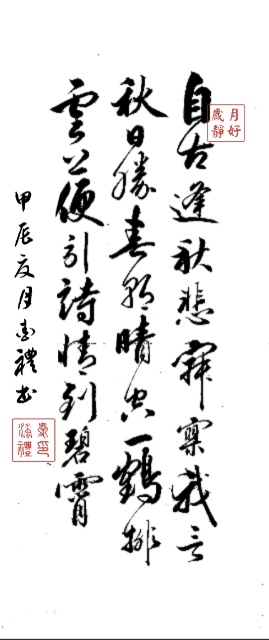 月好歲靜
自古逢秋悲寂寥我言
秋日勝春朝晴空一鶴排
雲上便引詩情到碧霄
甲辰夏月禮书